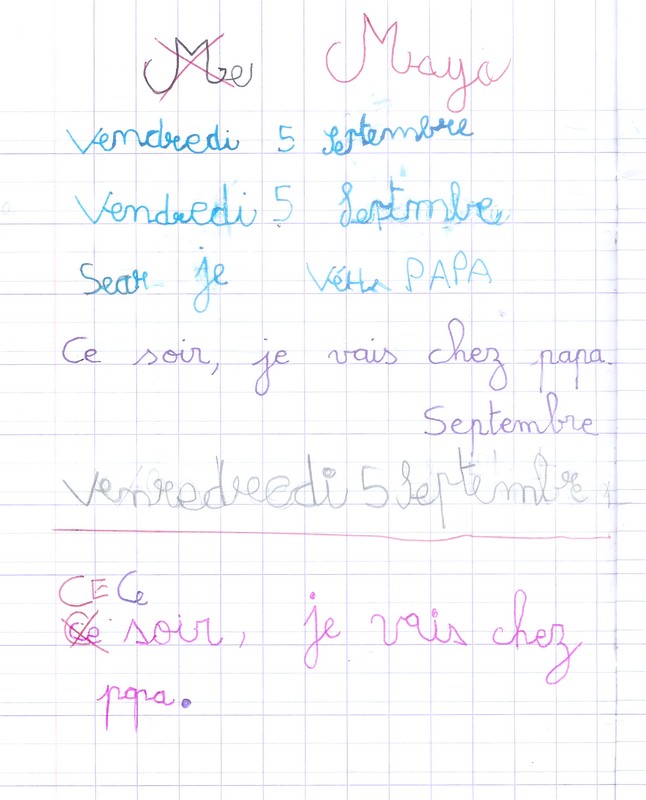 Me Maya
Vendredi 5 septembre
Vendredi 5 Septmbre
Sear je PAPA
Ce soir, je vais chez papa.
Septembre
Venredredi 5 Septembre
CE Ce
Ce soir, je vais chez
papa.